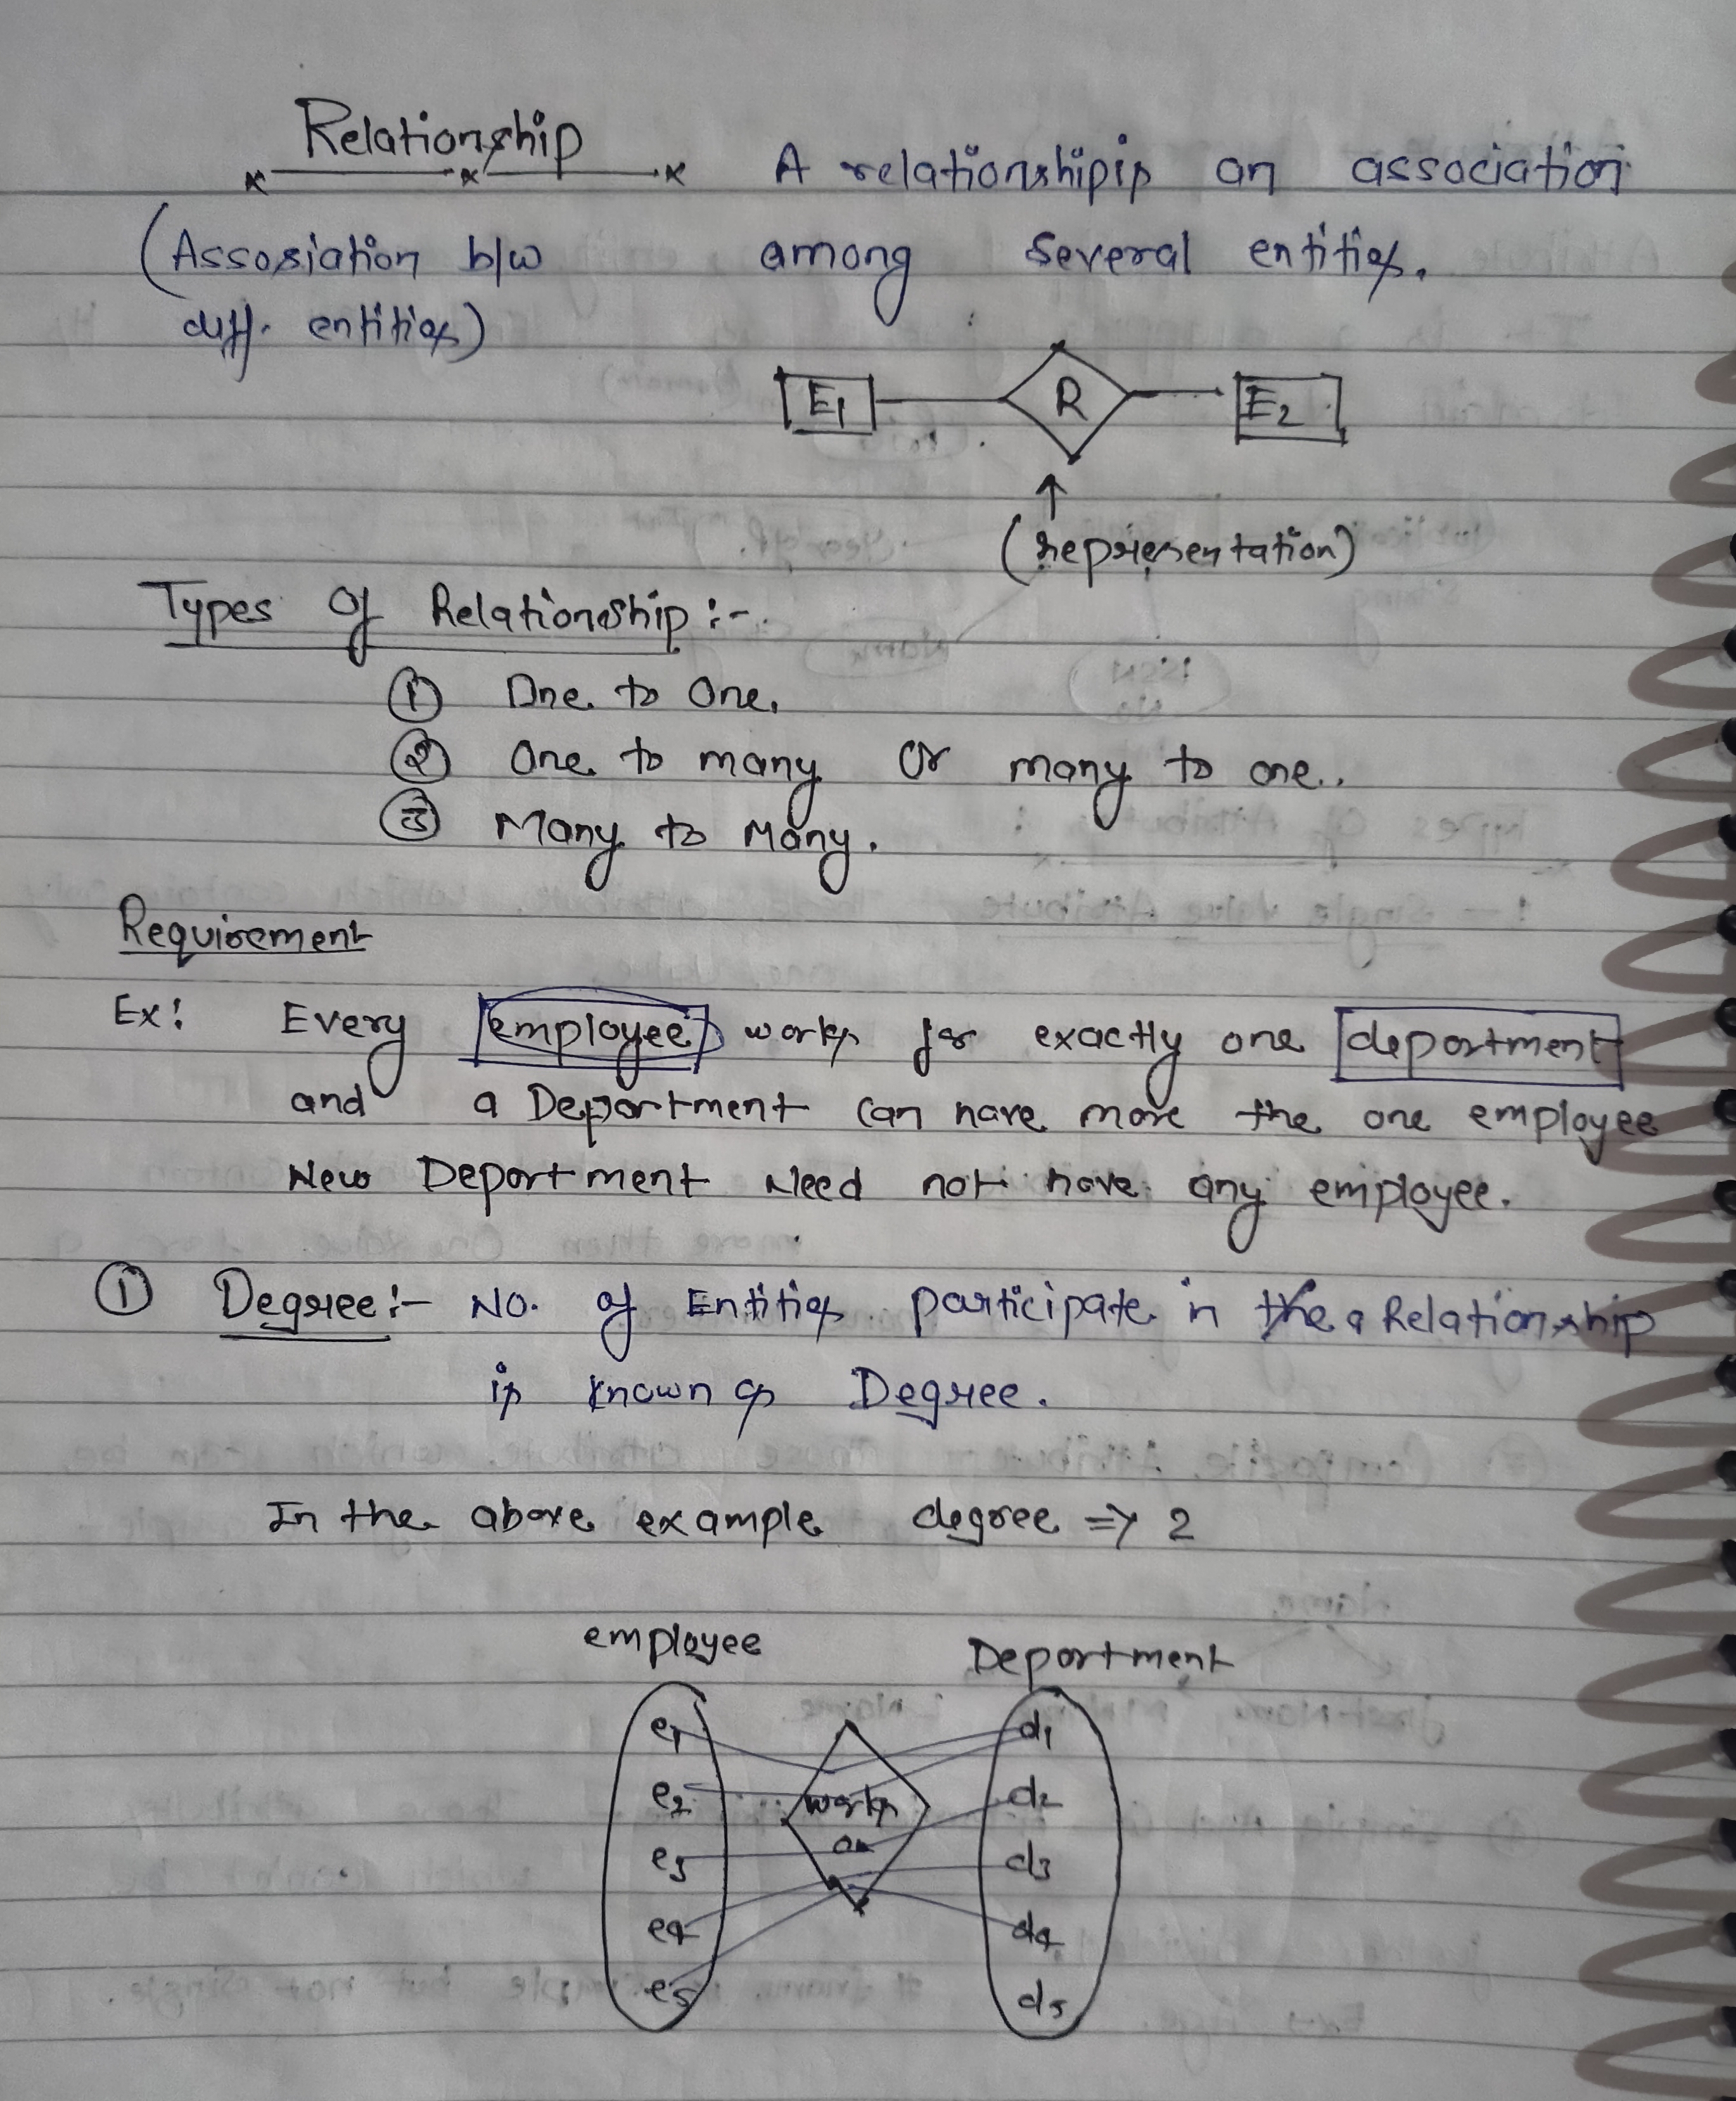 Relationship
A relationship is an association
(Assosiation b/w
among several entities.
diff. entities)
E1 R E2
(representation)
Types of Relationship :-
① One to One.
② One to many or many to one..
③ Many to Many.
Requirement
Ex: Every employee works for exactly one department
and a Department can have more the one employee
New Department Need not have any employee.
① Degree :- No. of Entities participate in the a Relationship
is known as Degree.
In the above example degree => 2
employee Department
e1 d1
e2 works d2
on
e3 d3
e4 d4
e5 d5